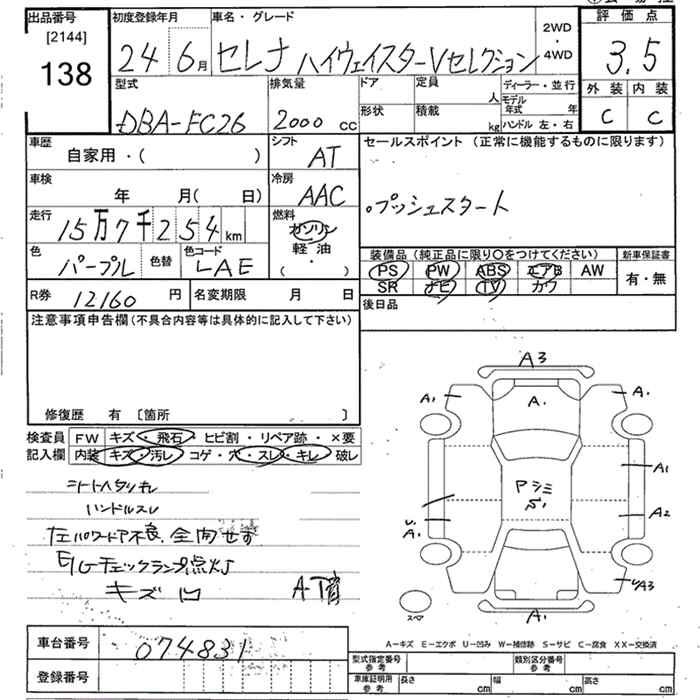 出品番号 初度登録年月 車名・グレード 評価点
[2144]
138
24 6月 セレナ ハイウェイスターVセレクション 2WD・4WD 3.5
型式 排気量 ドア 定員 人 ディーラー・並行 外装 内装
DBA-FC26 2000 cc 形状 積載 kg モデル年式 年 C C
ハンドル 左・右
車歴 シフト セールスポイント (正常に機能するものに限ります)
自家用・( ) AT
車検 冷房
年 月(日) AAC プッシュスタート
走行 燃料
15万7千254km ガソリン
軽油
・( )
色 色替 色コード 装備品 (純正品に限り○をつけてください) 新車保証書
パープル LAE PS PW ABS エアB AW 有・無
SR ナビ TV カワ
R券 12160円 名変期限 月 日 後日品
注意事項申告欄(不具合内容等は具体的に記入して下さい)
修復歴 有 [箇所 ]
検査員 FW キズ・飛石・ヒビ割・リペア跡・×要
記入欄 内装 キズ・汚レ コゲ・穴・スレ・キレ 破レ
シートヘタリキレ
ハンドルスレ
左パワードア不良 全閉せず
E/Gチェックランプ点灯
キズ凹
A3
A1 A. A.
A1
Pシミ
A2
U. A1
UA3
スペア A1
A=キズ E=エクボ U=凹み W=補修跡 S=サビ C=腐食 XX=交換済
車台番号 074831 型式指定番号 参考 類別区分番号 参考
登録番号 車庫証明用 参考 長さ cm 幅 cm 高さ cm